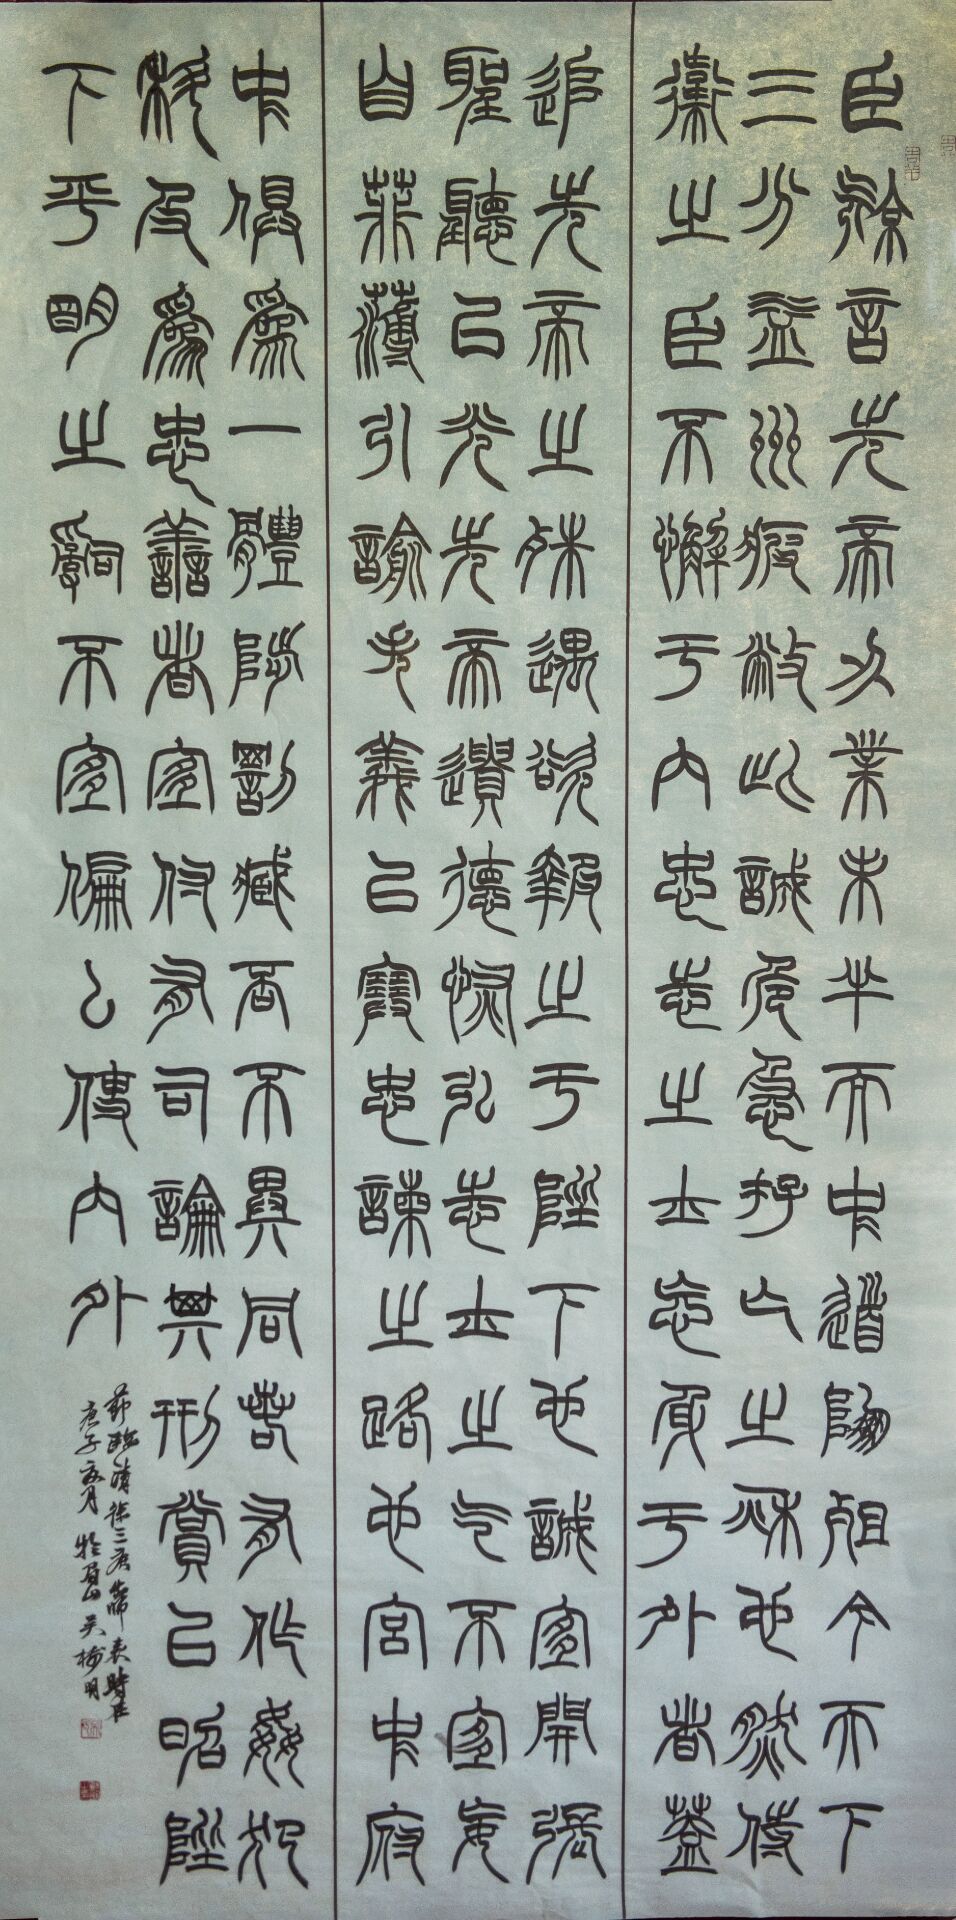 臣亮言先帝刅業未半而中道崩殂今天下
三分益州疲敝此誠危急存亡之秋也然侍
衞之臣不懈于內忠志之士忘身于外者蓋
追先帝之殊遇欲報之于陛下也誠宜開張
聖聽以光先帝遺德恢弘志士之气不宜妄
自菲薄引諭失義以塞忠諫之路也宮中府
中俱爲一體陟罰臧否不異同若有作姦犯
科及爲忠善者宜付有司論其刑賞以昭陛
下平明之治不宜偏厶使內外
節臨清徐三庚出師表時在
庚子夏月於眉山吴梅明